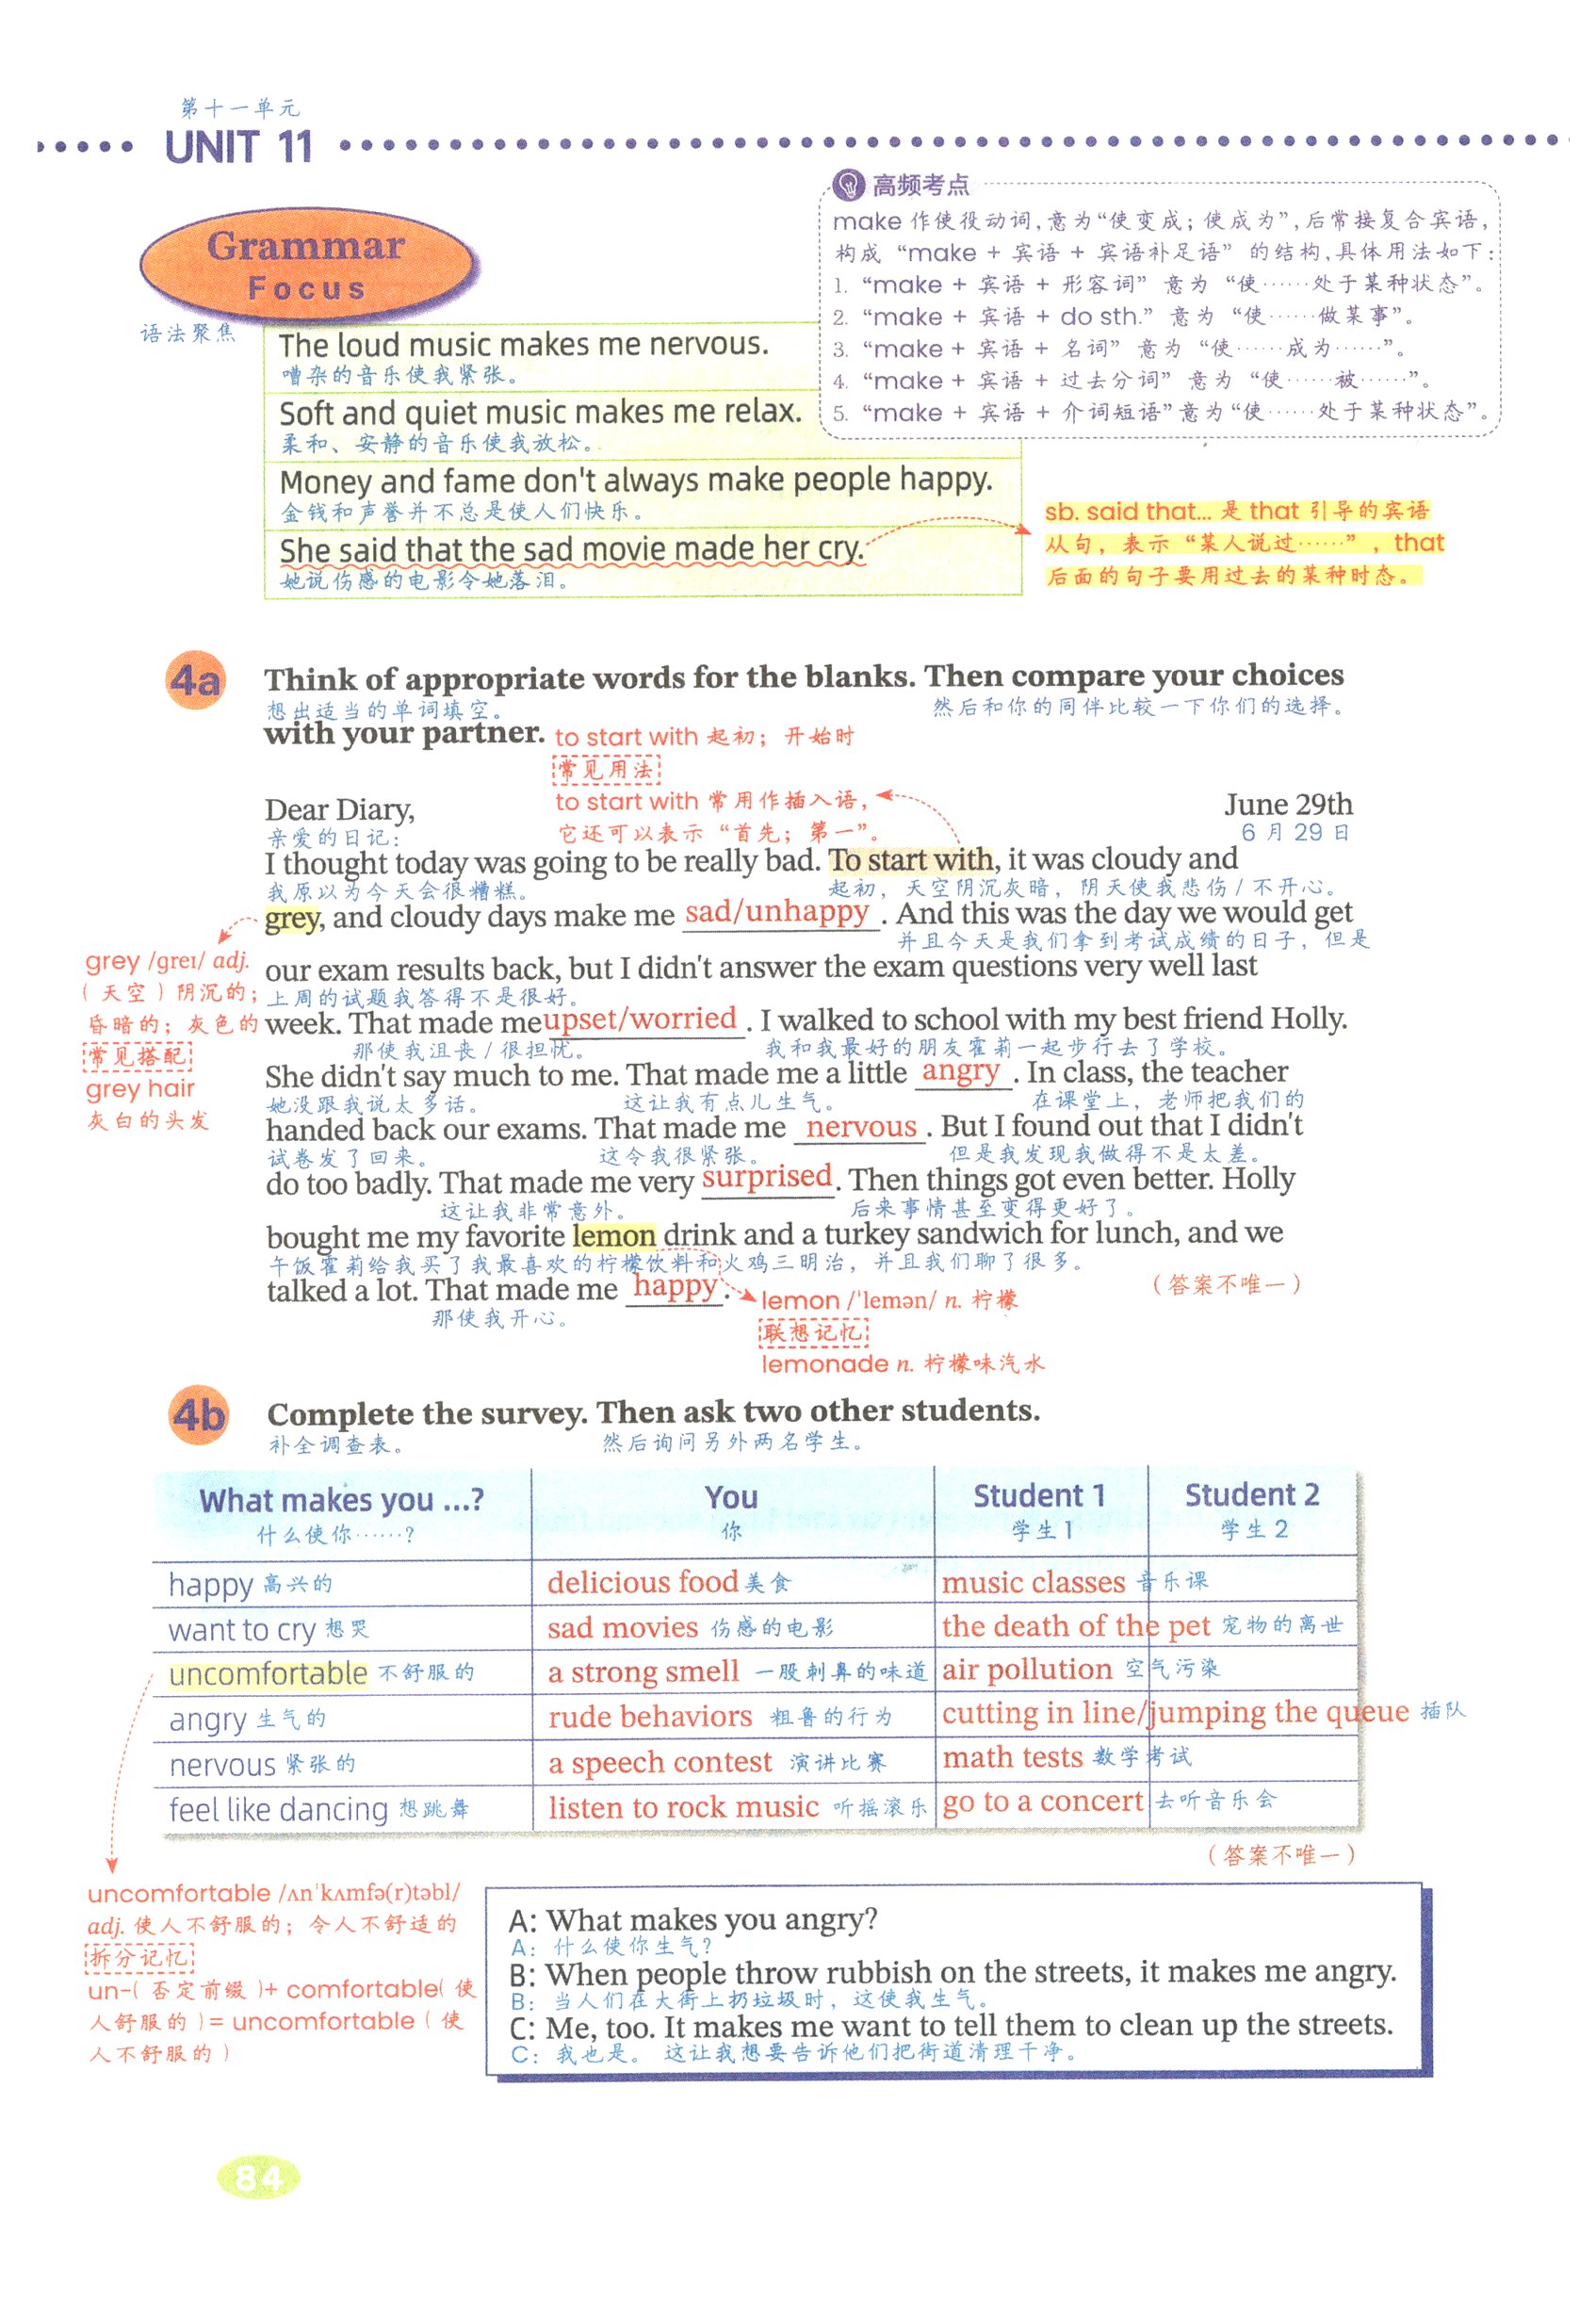 第十一单元
UNIT 11
高频考点
make 作使役动词,意为“使变成；使成为”,后常接复合宾语,
构成 “make + 宾语 + 宾语补足语” 的结构,具体用法如下：
1. “make + 宾语 + 形容词” 意为 “使……处于某种状态”。
2. “make + 宾语 + do sth.” 意为 “使……做某事”。
3. “make + 宾语 + 名词” 意为 “使……成为……”。
4. “make + 宾语 + 过去分词” 意为 “使……被……”。
5. “make + 宾语 + 介词短语”意为“使……处于某种状态”。
Grammar
Focus
语法聚焦
The loud music makes me nervous.
嘈杂的音乐使我紧张。
Soft and quiet music makes me relax.
柔和、安静的音乐使我放松。
Money and fame don't always make people happy.
金钱和声誉并不总是使人们快乐。
She said that the sad movie made her cry.
她说伤感的电影令她落泪。
sb. said that... 是 that 引导的宾语
从句，表示 “某人说过……” ，that
后面的句子要用过去的某种时态。
4a
Think of appropriate words for the blanks. Then compare your choices
想出适当的单词填空。 然后和你的同伴比较一下你们的选择。
with your partner. to start with 起初；开始时
常见用法
to start with 常用作插入语，
它还可以表示 “首先；第一”。
Dear Diary, June 29th
亲爱的日记： 6 月 29 日
I thought today was going to be really bad. To start with, it was cloudy and
我原以为今天会很糟糕。 起初，天空阴沉灰暗，阴天使我悲伤 / 不开心。
grey, and cloudy days make me sad/unhappy . And this was the day we would get
并且今天是我们拿到考试成绩的日子，但是
our exam results back, but I didn't answer the exam questions very well last
上周的试题我答得不是很好。
week. That made me upset/worried . I walked to school with my best friend Holly.
那使我沮丧 / 很担忧。 我和我最好的朋友霍莉一起步行去了学校。
She didn't say much to me. That made me a little angry . In class, the teacher
她没跟我说太多话。 这让我有点儿生气。 在课堂上，老师把我们的
handed back our exams. That made me nervous . But I found out that I didn't
试卷发了回来。 这令我很紧张。 但是我发现我做得不是太差。
do too badly. That made me very surprised. Then things got even better. Holly
这让我非常意外。 后来事情甚至变得更好了。
bought me my favorite lemon drink and a turkey sandwich for lunch, and we
午饭霍莉给我买了我最喜欢的柠檬饮料和火鸡三明治，并且我们聊了很多。
talked a lot. That made me happy.
那使我开心。
（答案不唯一）
grey /ɡreɪ/ adj.
（天空）阴沉的；
昏暗的；灰色的
常见搭配
grey hair
灰白的头发
lemon /ˈlemən/ n. 柠檬
联想记忆
lemonade n. 柠檬味汽水
4b
Complete the survey. Then ask two other students.
补全调查表。 然后询问另外两名学生。
What makes you ...? You Student 1 Student 2
什么使你……? 你 学生 1 学生 2
happy 高兴的 delicious food 美食 music classes 音乐课
want to cry 想哭 sad movies 伤感的电影 the death of the pet 宠物的离世
uncomfortable 不舒服的 a strong smell 一股刺鼻的味道 air pollution 空气污染
angry 生气的 rude behaviors 粗鲁的行为 cutting in line/jumping the queue 插队
nervous 紧张的 a speech contest 演讲比赛 math tests 数学考试
feel like dancing 想跳舞 listen to rock music 听摇滚乐 go to a concert 去听音乐会
（答案不唯一）
uncomfortable /ʌnˈkʌmfə(r)təbl/
adj. 使人不舒服的；令人不舒适的
拆分记忆
un-( 否定前缀 )+ comfortable( 使
人舒服的 ) = uncomfortable ( 使
人不舒服的 )
A: What makes you angry?
A： 什么使你生气？
B: When people throw rubbish on the streets, it makes me angry.
B： 当人们在大街上扔垃圾时，这使我生气。
C: Me, too. It makes me want to tell them to clean up the streets.
C： 我也是。 这让我想要告诉他们把街道清理干净。
84